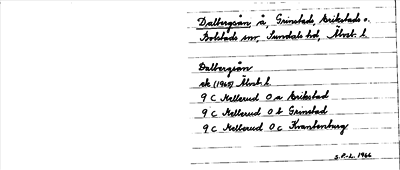 Dalbergsån å, Grinstads, Erikstads o.
Bolstads snr, Sundals hd, Älvsb. l.
Dalbergsån
ek (1967) Älvsb. l.
9 C Mellerud 0 a Erikstad
9 C Mellerud 0 b Grinstad
9 C Mellerud 0 c Kvantenburg
S.P-L. 1966